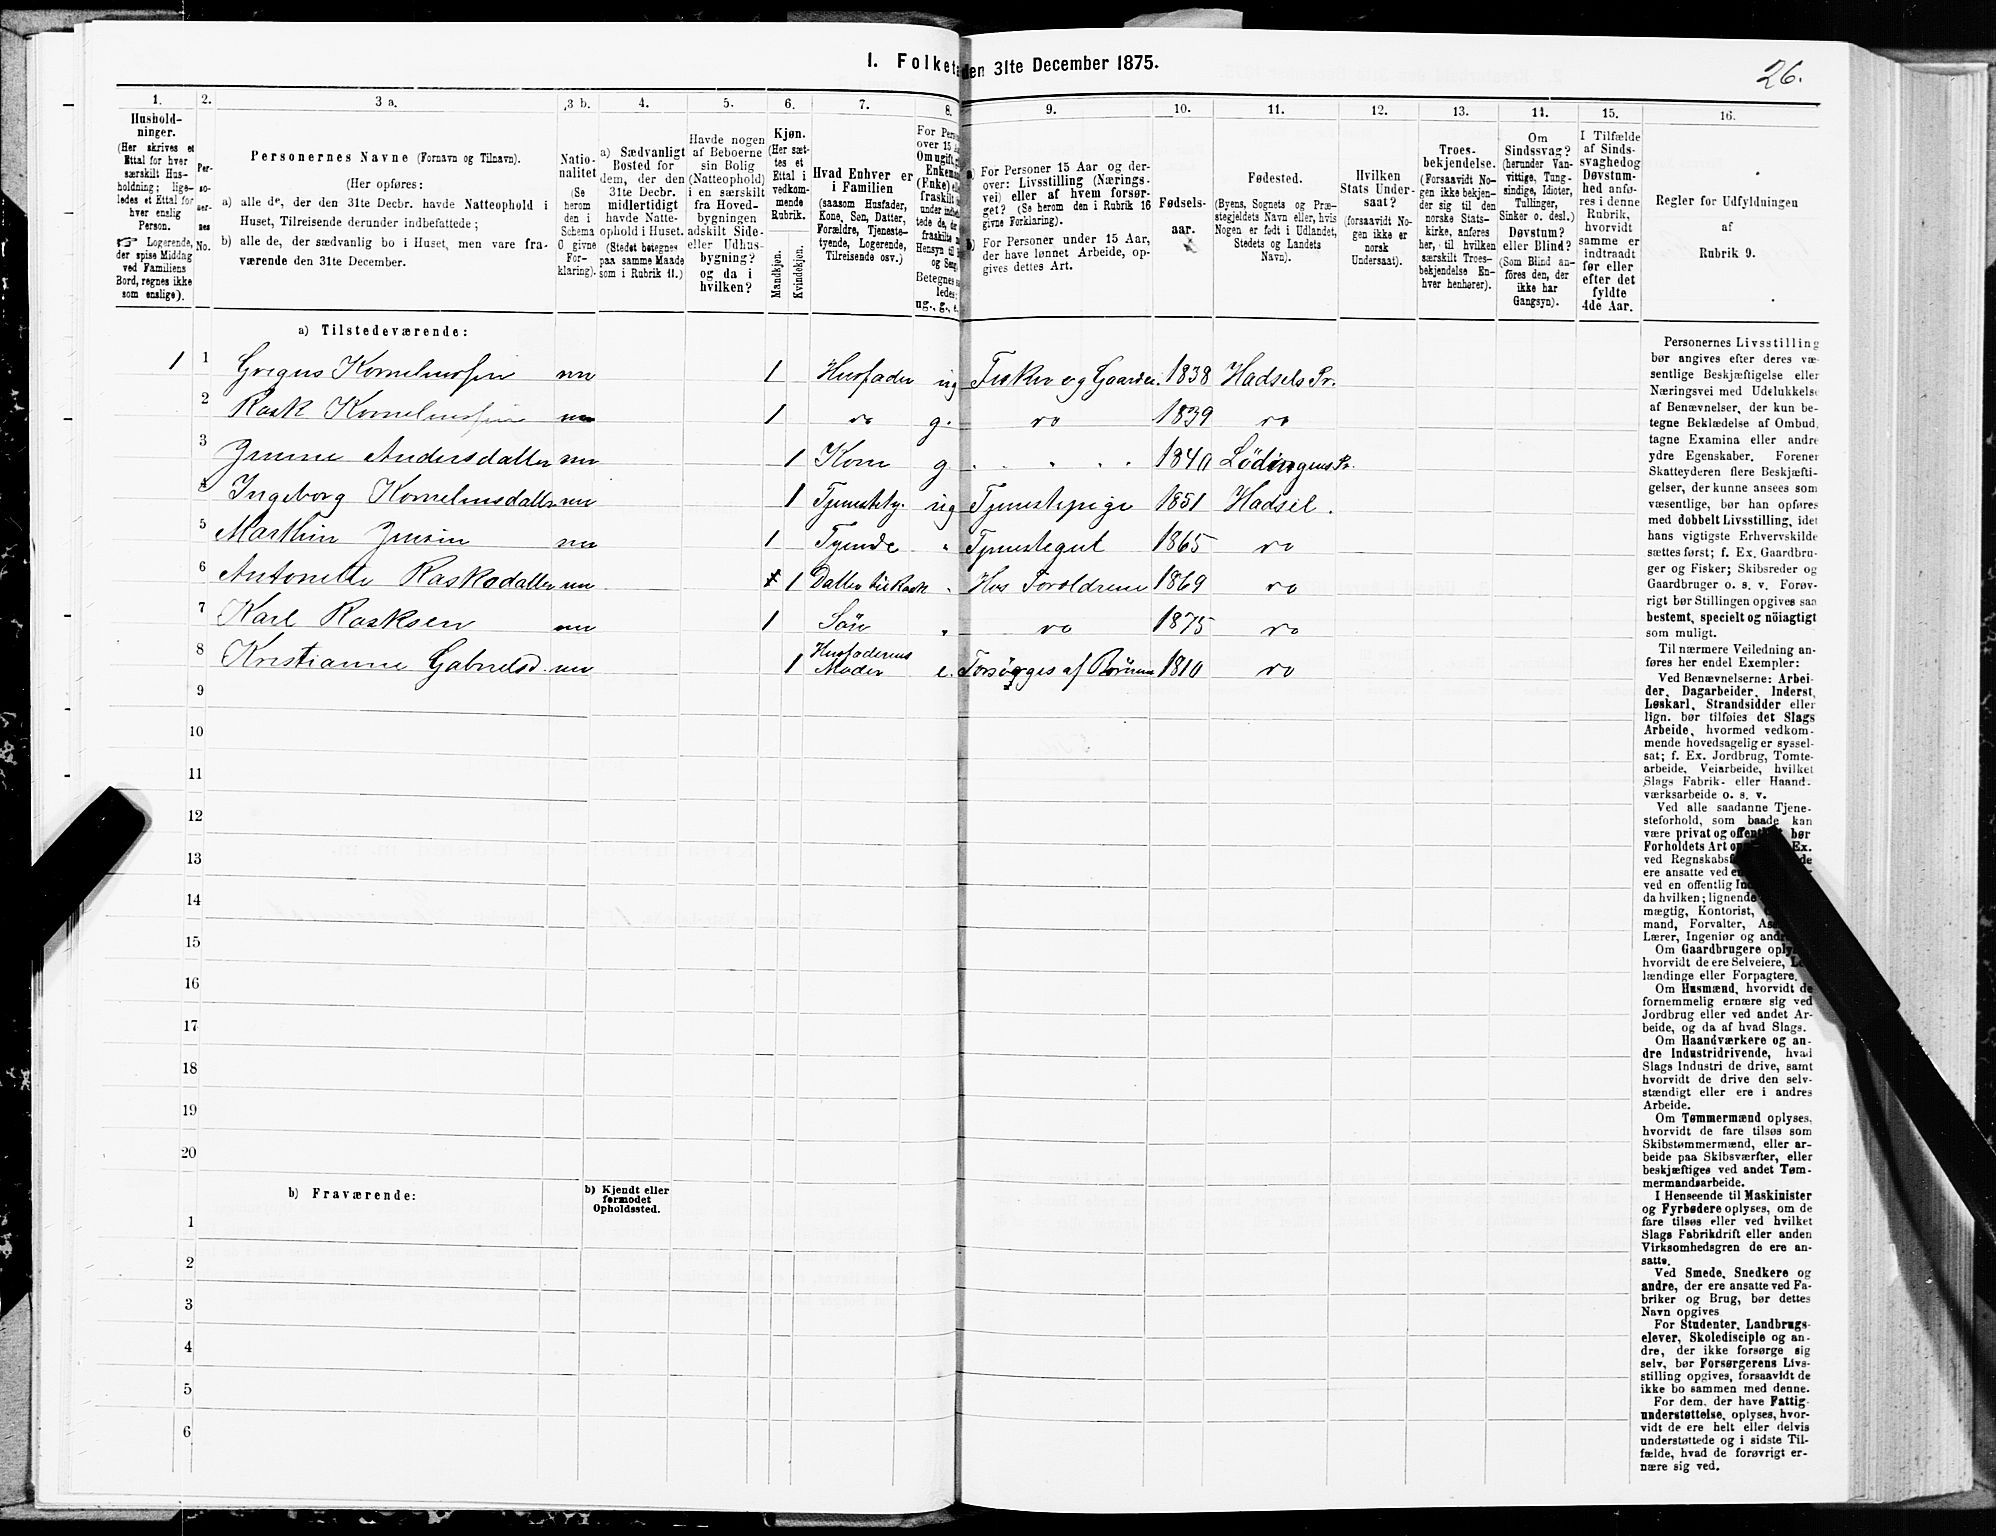 26.
I. Folketa den 31te December 1875.
1. 2. 3 a. 3 b. 4. 5. 6. 7. 8. 9. 10. 11. 12. 13. 14. 15. 16.
Hushold-
ninger.
(Her skrives et
Ettal for hver
særskilt Hus-
holdning; lige-
ledes et Ettal for
hver enslig
Person.
☞ Logerende,
der spise Middag
ved Familiens
Bord, regnes ikke
som enslige).
Per-
so-
ner-
nes
No.
Personernes Navne (Fornavn og Tilnavn).
(Her opføres:
a) alle de, der den 31te Decbr. havde Natteophold i
Huset, Tilreisende derunder indbefattede;
b) alle de, der sædvanlig bo i Huset, men vare fra-
værende den 31te December.
Natio-
nalitet
(Se
herom
den i
Schema
0 givne
For-
klaring).
a) Sædvanligt
Bosted for
dem, der den
31te Decbr.
midlertidigt
havde Natte-
ophold i Huset.
(Stedet betegnes
paa samme Maade
som i Rubrik 11.)
Havde nogen
af Beboerne
sin Bolig
(Natteophold)
i en særskilt
fra Hoved-
bygningen
adskilt Side-
eller Udhus-
bygning?
og da i
hvilken?
Kjøn.
(Her sæt-
tes et
Ettal i
vedkom-
mende
Rubrik.
Mandkjøn.
Kvindekjøn.
Hvad Enhver er
i Familien
(saasom Husfader,
Kone, Søn, Datter,
Forældre, Tjeneste-
tyende, Logerende,
Tilreisende osv.)
For Pers
over 15 A
Om ugift, g
Enkem
(Enke) e
fraskilt
under
tede de,
fraskilte
Hensyn til
og Seng
Betegnes
ledes:
ug., g., e.
a) For Personer 15 Aar og der-
over: Livsstilling (Nærings-
vei) eller af hvem forsør-
get? (Se herom den i Rubrik 16
givne Forklaring).
b) For Personer under 15 Aar,
der have lønnet Arbeide, op-
gives dettes Art.
Fødsels-
aar.
Fødested.
(Byens, Sognets og Præ-
stegjeldets Navn eller, hvis
Nogen er født i Udlandet,
Stedets og Landets
Navn).
Hvilken
Stats Under-
saat?
(forsaavidt No-
gen ikke er
norsk
Undersaat).
Troes-
bekjendelse.
(Forsaavidt No-
gen ikke bekjen-
der sig til den
norske Stats-
kirke, anføres
her, til hvilken
særskilt Troes-
bekjendelse En-
hver henhører).
Om
Sindssvag?
(herunder Van-
vittige, Tung-
sindige, Idioter,
Tullinger,
Sinker o. desl.)
Døvstum?
eller Blind?
(Som Blind an-
føres den, der
ikke har
Gangsyn).
I Tilfælde
af Sinds-
svaghedog
Døvstum-
hed anfø-
res i denne
Rubrik,
hvorvidt
samme er
indtraadt
før eller
efter det
fyldte
4de Aar.
Regler for Udfyldningen
af
Rubrik 9.
a) Tilstedeværende:
1 1 Gregus Korneliussen nn 1 Husfader ug Fisker og Gaardbr. 1838 Hadsels Pr.
2 Rask Korneliussen nn 1 do g. do 1839 do
3 Andersdatter nn 1 Kone g 1840 Lødingens Pr.
4 Ingeborg Korneliusdatter nn 1 Tjenestety. ug Tjenestepige 1851 Hadsel.
5 Marthin Jensen nn 1 Tyende " Tjenestegut 1865 do
6 Antonette Rasksdatter nn 1 Datter til Rask " Hos Foroldrene 1869 do
7 Karl Rasksen nn 1 Søn " do 1875 do
8 Kristianne Gabrielsd. nn 1 Husfaderens Moder e. Forsørges af Børnene 1810 do
9
10
11
12
13
14
15
16
17
18
19
20
b) Fraværende:
b) Kjendt eller
formodet
Opholdssted.
1
2
3
4
5
6
Personernes Livsstilling
bør angives efter deres væ-
sentlige Beskjæftigelse eller
Næringsvei med Udelukkelse
af Benævnelser, der kun be-
tegne Beklædelse af Ombud,
tagne Examina eller andre
ydre Egenskaber. Forener
Skatteyderen flere Beskjæfti-
gelser, der kunne ansees som
væsentlige, bør han opføres
med dobbelt Livsstilling, idet
hans vigtigste Erhvervskilde
sættes først; f. Ex. Gaardbru-
ger og Fisker; Skibsreder og
Gaardbruger o. s. v. Forøv-
rigt bør Stillingen opgives saa
bestemt, specielt og nöiagtigt
som muligt.
Til nærmere Veiledning an-
føres her endel Exempler:
Ved Benævnelserne: Arbei-
der, Dagarbeider, Inderst,
Løskarl, Strandsidder eller
lign. bør tilføies det Slags
Arbeide, hvormed vedkom-
mende hovedsagelig er syssel-
sat; f. Ex. Jordbrug, Tomte-
arbeide, Veiarbeide, hvilket
Slags Fabrik- eller Haand-
værksarbeide o. s. v.
Ved alle saadanne Tjene-
steforhold, som baade kan
være privat og offentligt bør
Forholdets Art op Ex.
ved Regnskabsf de
ere ansatte ved e
ved en offentlig In
da hvilken; lignende
mægtig, Kontorist,
mand, Forvalter, As
Lærer, Ingeniør og andre
Om Gaardbrugere oply
hvorvidt de ere Selveiere, L
lændinge eller Forpagtere.
Om Husmænd, hvorvidt de
fornemmelig ernære sig ved
Jordbrug eller ved andet Ar-
beide, og da af hvad Slags.
Om Haandværkere og an-
dre Industridrivende, hvad
Slags Industri de drive, samt
hvorvidt de drive den selv-
stændigt eller ere i andres
Arbeide.
Om Tømmermænd oplyses,
hvorvidt de fare tilsøs som
Skibstømmermænd, eller ar-
beide paa Skibsværfter, eller
beskjæftiges ved andet Tøm-
mermandsarbeide.
I Henseende til Maskinister
og Fyrbødere oplyses, om de
fare tilsøs eller ved hvilket
Slags Fabrikdrift eller anden
Virksomhedsgren de ere an-
satte.
Ved Smede, Snedkere og
andre, der ere ansatte ved Fa-
briker og Brug, bør dettes
Navn opgives
For Studenter, Landbrugs-
elever, Skoledisciple og an-
dre, der ikke forsørge sig
selv, bør Forsørgerens Livs-
stilling opgives, forsaavidt de
ikke bo sammen med denne.
For dem, der have Fattig-
understøttelse, oplyses, hvor-
vidt de ere helt eller delvis
understøttede og i sidste Til-
fælde, hvad de forøvrigt er-
nære sig ved.